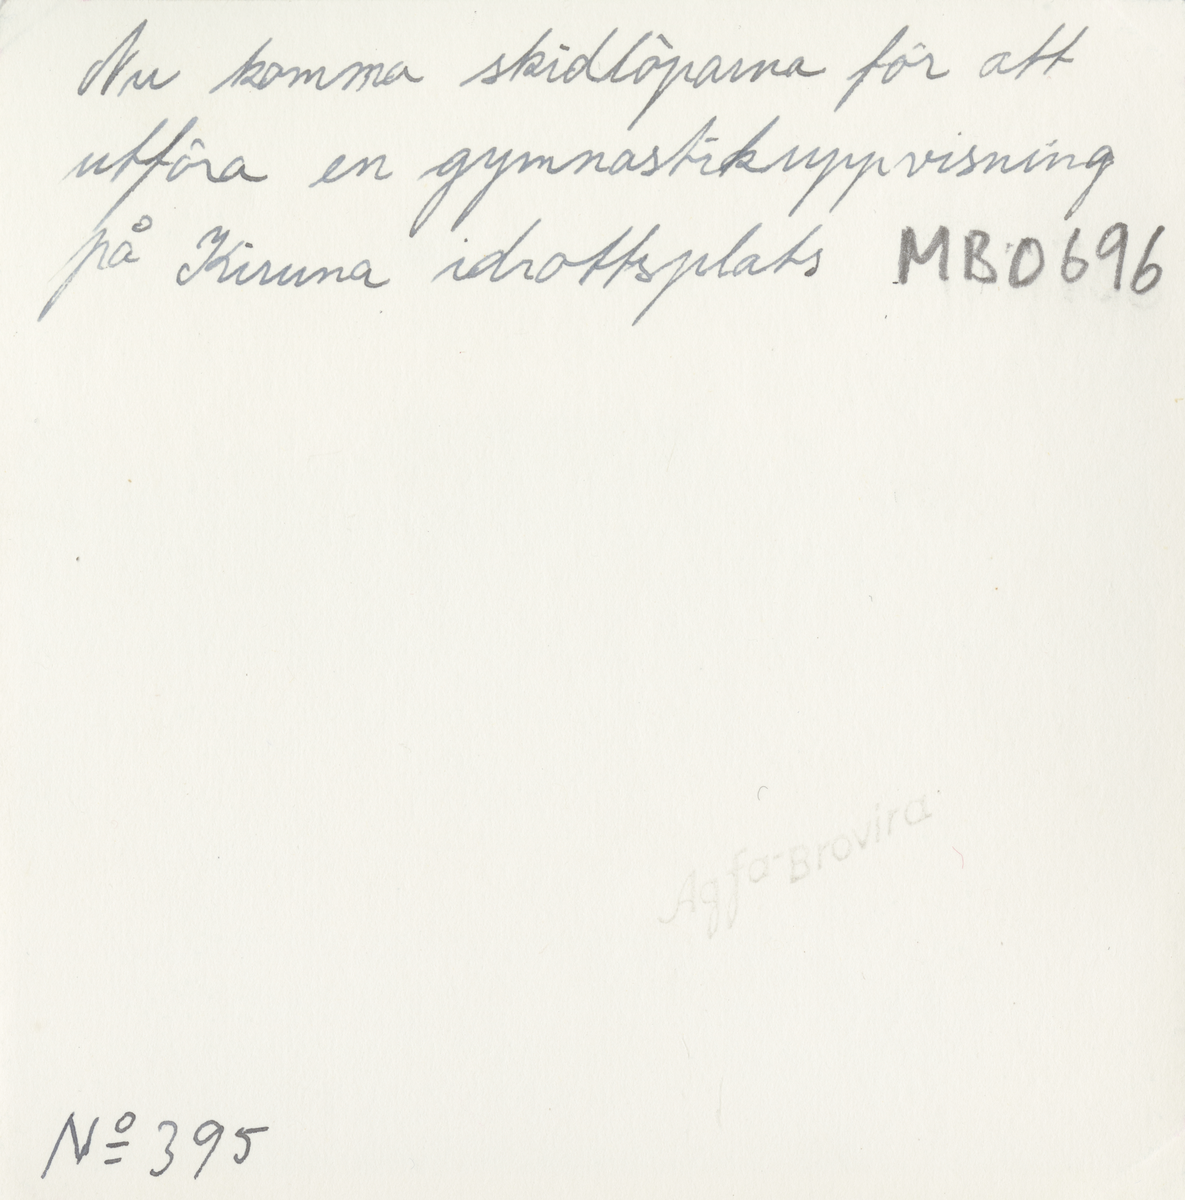 Nu komma skidlöparna för att
utföra en gymnastikuppvisning
på Kiruna idrottsplats MBD696
Agfa-Brovira
Nº 395